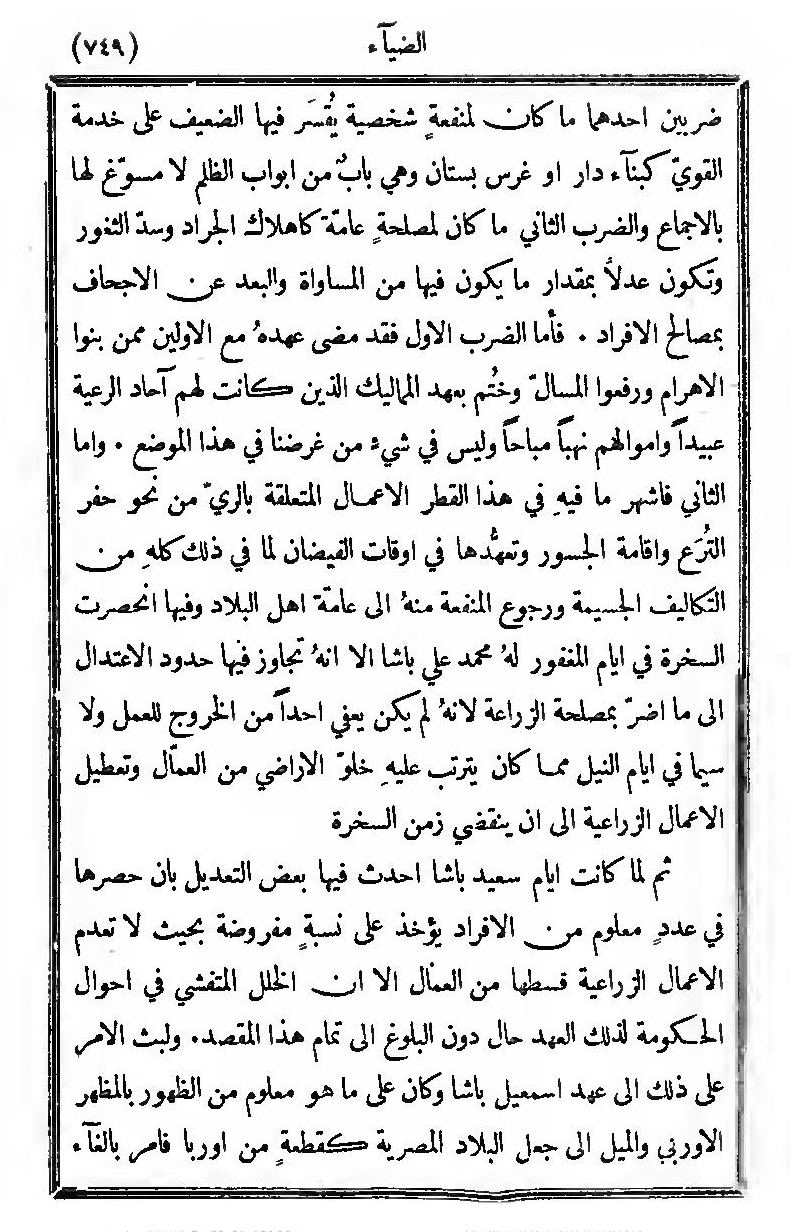 الضيآء
(٧٤٩)
ضربين احدهما ما كان لمنفعةٍ شخصية يُقسَر فيها الضعيف على خدمة
القويّ كبنآء دار او غرس بستان وهي بابٌ من ابواب الظلم لا مسوّغ لها
بالاجماع والضرب الثاني ما كان لمصلحةٍ عامّة كاهلاك الجراد وسدّ الثغور
وتكون عدلاً بمقدار ما يكون فيها من المساواة والبعد عن الاجحاف
بمصالح الافراد . فأما الضرب الاول فقد مضى عهدهُ مع الاولين ممن بنوا
الاهرام ورفعوا المسالّ وخُتم بعهد المماليك الذين كانت لهم آحاد الرعية
عبيداً واموالهم نهباً مباحاً وليس في شيء من غرضنا في هذا الموضع . واما
الثاني فاشهر ما فيهِ في هذا القطر الاعمال المتعلقة بالريّ من نحو حفر
التُرَع واقامة الجسور وتعهُّدها في اوقات الفيضان لما في ذلك كلهِ من
التكاليف الجسيمة ورجوع المنفعة منهُ الى عامّة اهل البلاد وفيها انحصرت
السخرة في ايام المغفور لهُ محمد علي باشا الا انهُ تجاوز فيها حدود الاعتدال
الى ما اضرّ بمصلحة الزراعة لانهُ لم يكن يعفي احداً من الخروج للعمل ولا
سيما في ايام النيل مما كان يترتب عليهِ خلوّ الاراضي من العمّال وتعطيل
الاعمال الزراعية الى ان ينقضي زمن السخرة
ثم لما كانت ايام سعيد باشا احدث فيها بعض التعديل بان حصرها
في عددٍ معلوم من الافراد يؤخذ على نسبةٍ مفروضة بحيث لا تعدم
الاعمال الزراعية قسطها من العمّال الا ان الخلل المتفشي في احوال
الحكومة لذلك العهد حال دون البلوغ الى تمام هذا المقصد. ولبث الامر
على ذلك الى عهد اسمعيل باشا وكان على ما هو معلوم من الظهور بالمظهر
الاوربي والميل الى جعل البلاد المصرية كقطعةٍ من اوربا فامر بالغآء